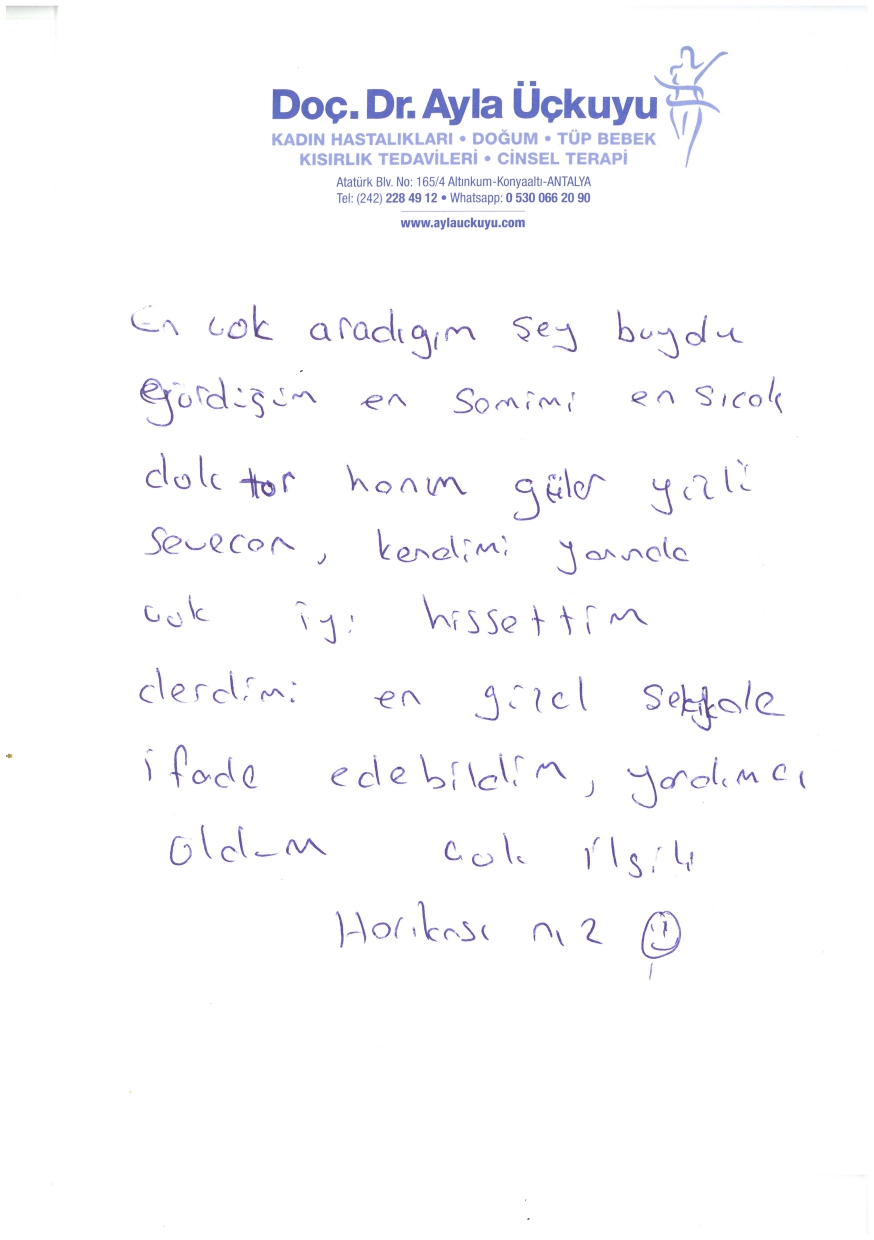 Doç. Dr. Ayla Üçkuyu
KADIN HASTALIKLARI • DOĞUM • TÜP BEBEK
KISIRLIK TEDAVİLERİ • CİNSEL TERAPİ
Atatürk Blv. No: 165/4 Altınkum-Konyaaltı-ANTALYA
Tel: (242) 228 49 12 • Whatsapp: 0 530 066 20 90
www.aylauckuyu.com
En cok aradıgım şey buydu
gördiğim en samimi en sıcak
doktor hanım güler yüzlü
sevecan, kendimi yanında
cok iyi hissettim
derdimi en güzel sekilde
ifade edebildim, yardımcı
oldum cok ilgili
Harikası nız